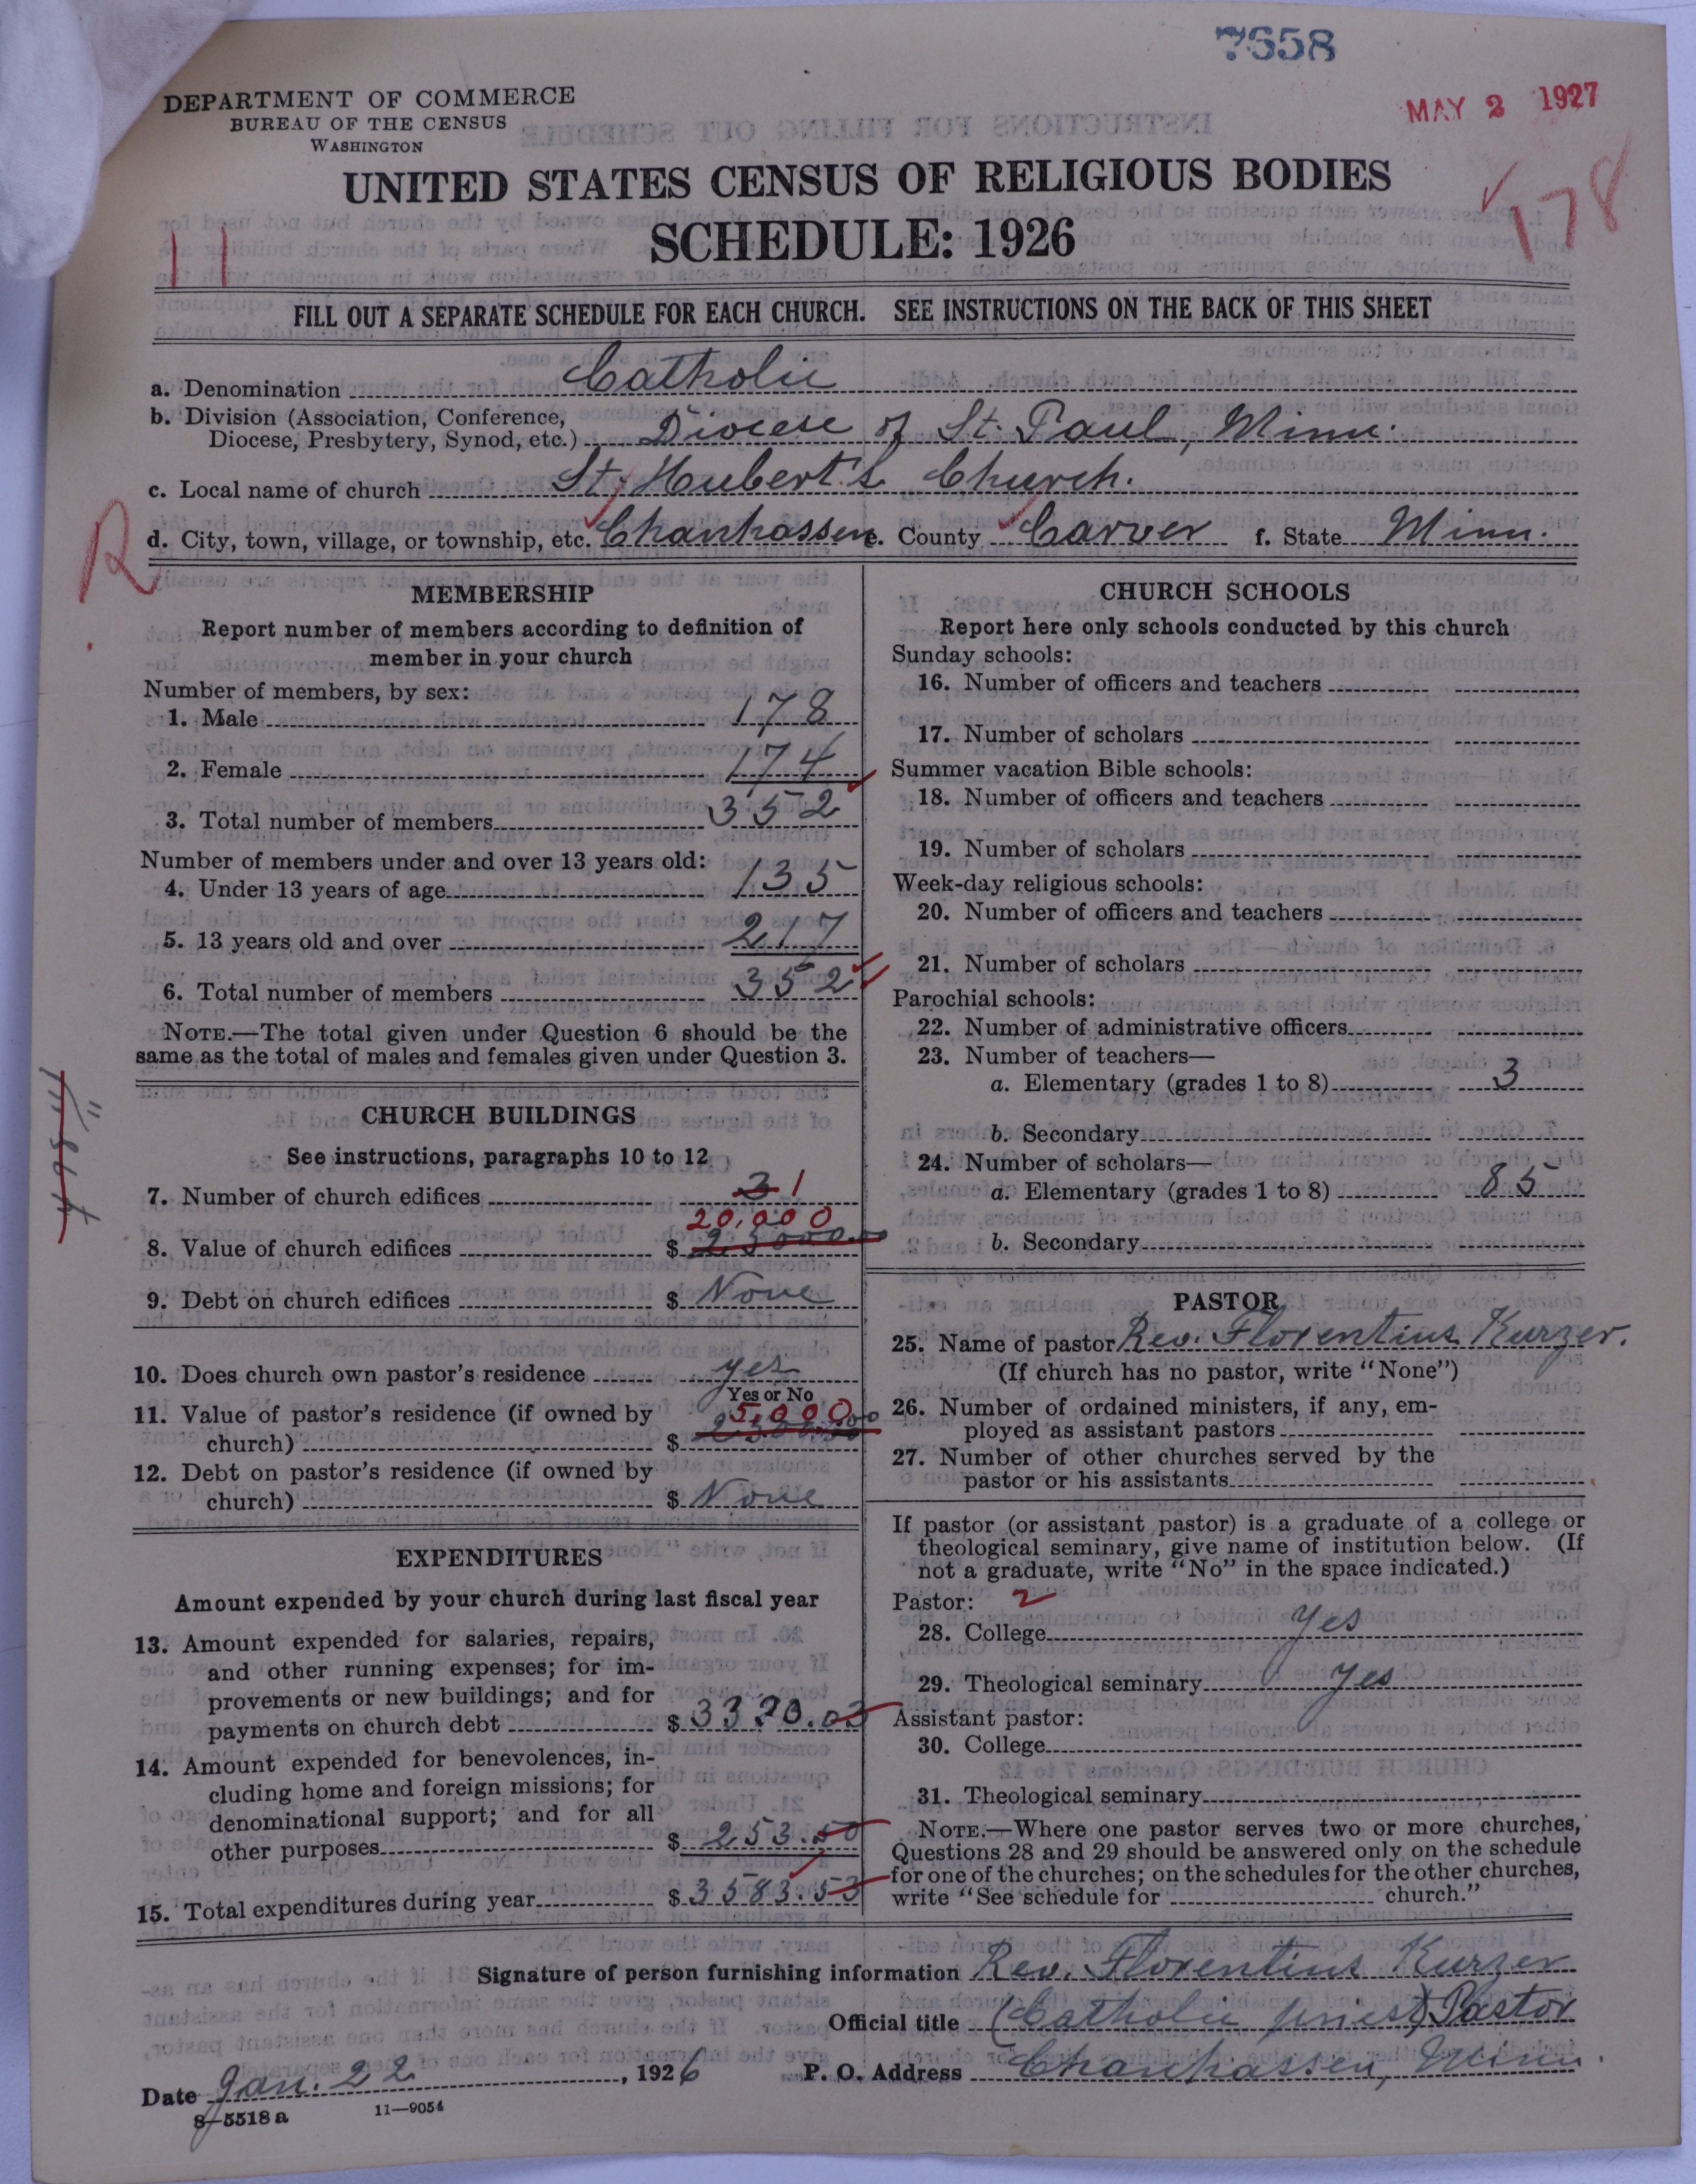 7658
DEPARTMENT OF COMMERCE
BUREAU OF THE CENSUS
WASHINGTON
MAY 2 1927
UNITED STATES CENSUS OF RELIGIOUS BODIES
178
11
SCHEDULE: 1926
FILL OUT A SEPARATE SCHEDULE FOR EACH CHURCH. SEE INSTRUCTIONS ON THE BACK OF THIS SHEET
a. Denomination Catholic
b. Division (Association, Conference,
Diocese, Presbytery, Synod, etc.) Diocese of St. Paul, Minn.
c. Local name of church St. Hubert's Church.
R
d. City, town, village, or township, etc. Chanhassen e. County Carver f. State Minn.
MEMBERSHIP
Report number of members according to definition of
member in your church
Number of members, by sex:
1. Male 178
2. Female 174
3. Total number of members 352
Number of members under and over 13 years old:
4. Under 13 years of age 135
5. 13 years old and over 217
6. Total number of members 352
NOTE.—The total given under Question 6 should be the
same as the total of males and females given under Question 3.
CHURCH BUILDINGS
See instructions, paragraphs 10 to 12
7. Number of church edifices 3 1
20,000
8. Value of church edifices $
9. Debt on church edifices $ None
10. Does church own pastor's residence yes
Yes or No
11. Value of pastor's residence (if owned by 5,000
church) $
12. Debt on pastor's residence (if owned by
church) $ None
EXPENDITURES
Amount expended by your church during last fiscal year
13. Amount expended for salaries, repairs,
and other running expenses; for im-
provements or new buildings; and for
payments on church debt $ 3330.03
14. Amount expended for benevolences, in-
cluding home and foreign missions; for
denominational support; and for all
other purposes $ 253.50
15. Total expenditures during year $ 3583.53
CHURCH SCHOOLS
Report here only schools conducted by this church
Sunday schools:
16. Number of officers and teachers
17. Number of scholars
Summer vacation Bible schools:
18. Number of officers and teachers
19. Number of scholars
Week-day religious schools:
20. Number of officers and teachers
21. Number of scholars
Parochial schools:
22. Number of administrative officers
23. Number of teachers—
a. Elementary (grades 1 to 8) 3
b. Secondary
24. Number of scholars—
a. Elementary (grades 1 to 8) 85
b. Secondary
PASTOR
25. Name of pastor Rev. Florentius Kurzer.
(If church has no pastor, write "None")
26. Number of ordained ministers, if any, em-
ployed as assistant pastors
27. Number of other churches served by the
pastor or his assistants
If pastor (or assistant pastor) is a graduate of a college or
theological seminary, give name of institution below. (If
not a graduate, write "No" in the space indicated.)
Pastor: 2
28. College Yes
29. Theological seminary Yes
Assistant pastor:
30. College
31. Theological seminary
NOTE.—Where one pastor serves two or more churches,
Questions 28 and 29 should be answered only on the schedule
for one of the churches; on the schedules for the other churches,
write "See schedule for church."
Signature of person furnishing information Rev. Florentius Kurzer
Official title (Catholic priest) Pastor
Date Jan. 22, 1926 P. O. Address Chanhassen, Minn.
8—5518 a 11—9054